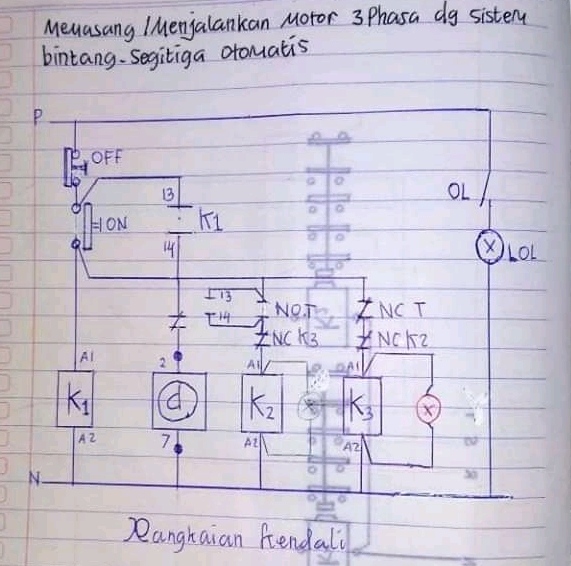 Memasang / Menjalankan Motor 3 Phasa dg sistem
bintang-Segitiga Otomatis
P
OFF
13
ON
K1
OL
14
LOL
13
NO.T
NC T
14
NC K3
NC K2
A1
2
A1
A1
K1
d
K2
X
K3
X
A2
7
A2
A2
N
Rangkaian Kendali